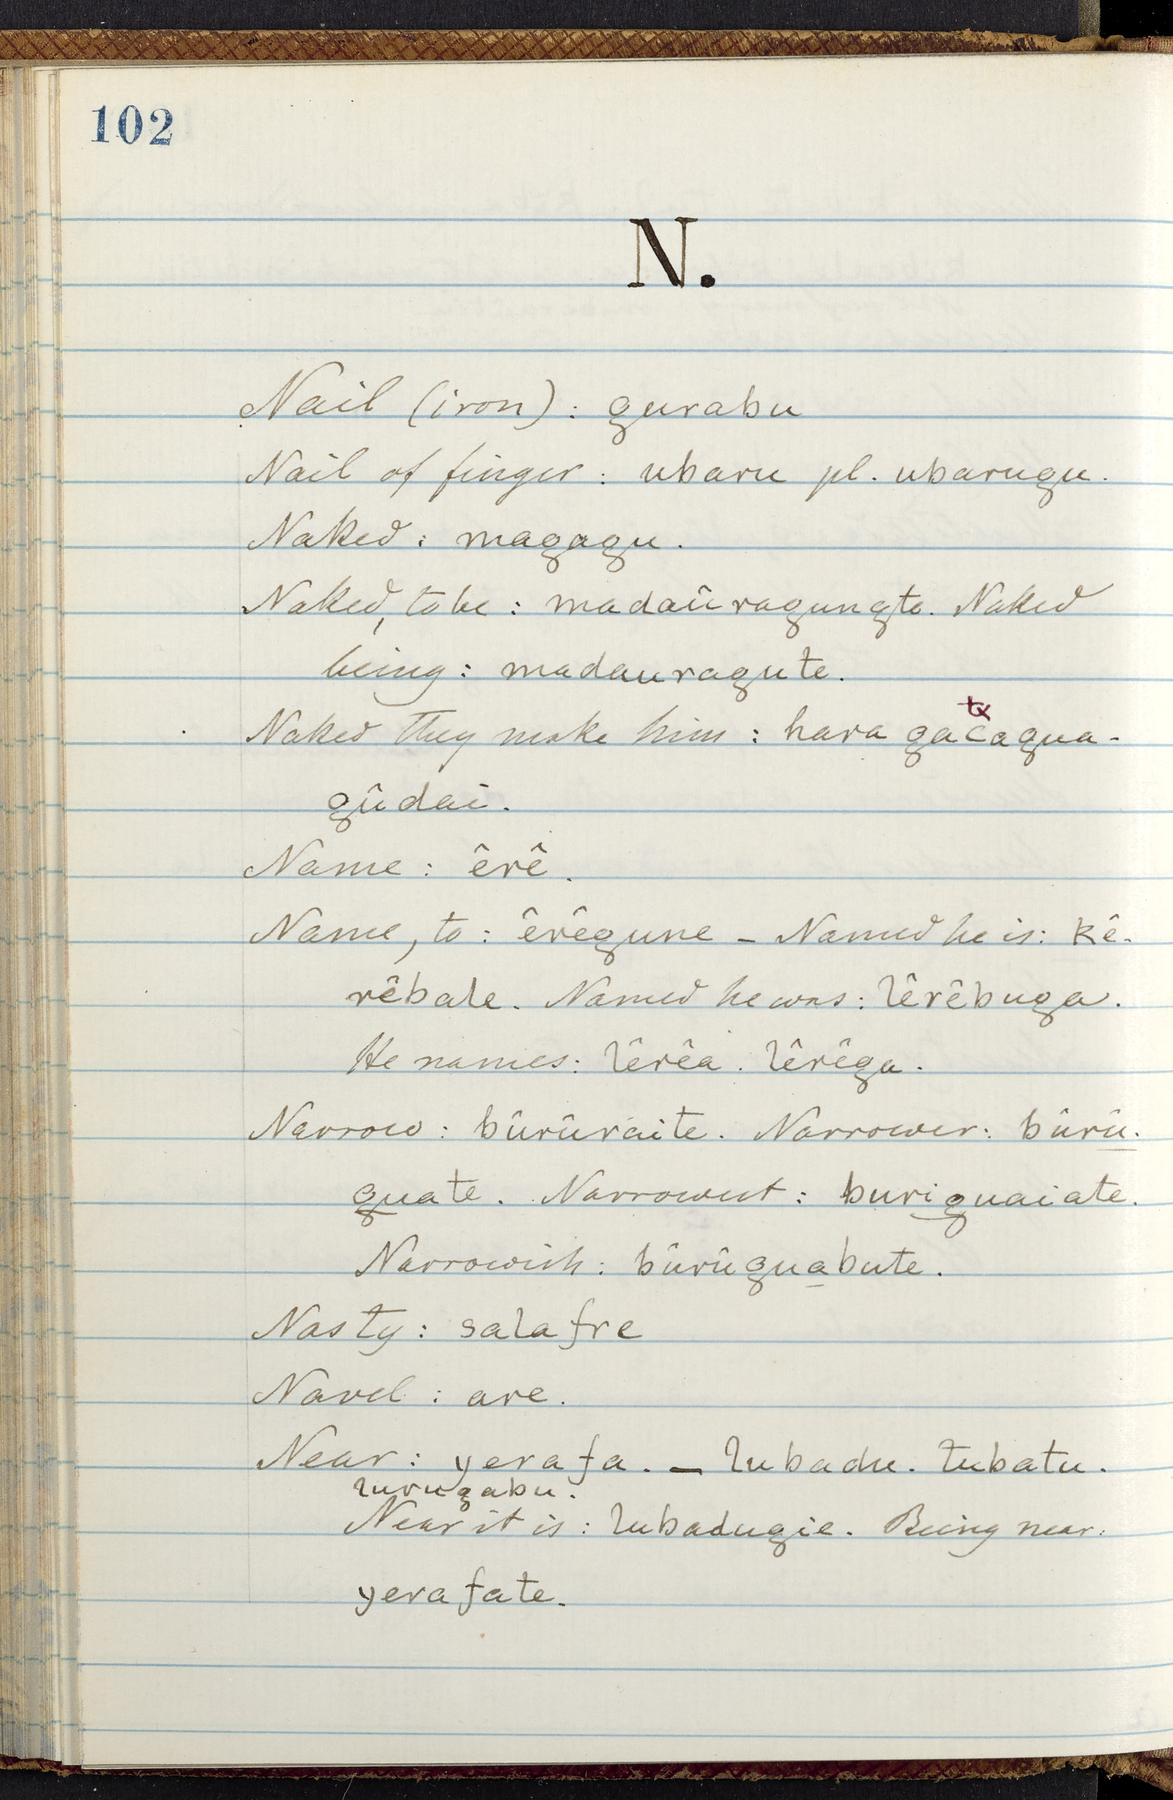 102
N.
Nail (iron): gurabu
Nail of finger: ubaru pl. ubarugu.
Naked: magagu.
Naked, to be: madaûragungte. Naked
being: madauragute.
tx
Naked they make him: hara gacagua-
gûdai.
Name: êrê.
Name, to: êrêgune – Named he is: kê-
rêbale. Named he was: lêrêbuga.
He names: lêrêa. lêrêga.
Narrow: bûrûraite. Narrower: bûrû-
guate. Narrowest: buriguaiate.
Narrowish: bûrûguabute.
Nasty: salafre
Navel: are.
Near: yerafa. – lubadu. tubatu.
lurugabu.
Near it is: lubadugie. Being near:
yerafate.